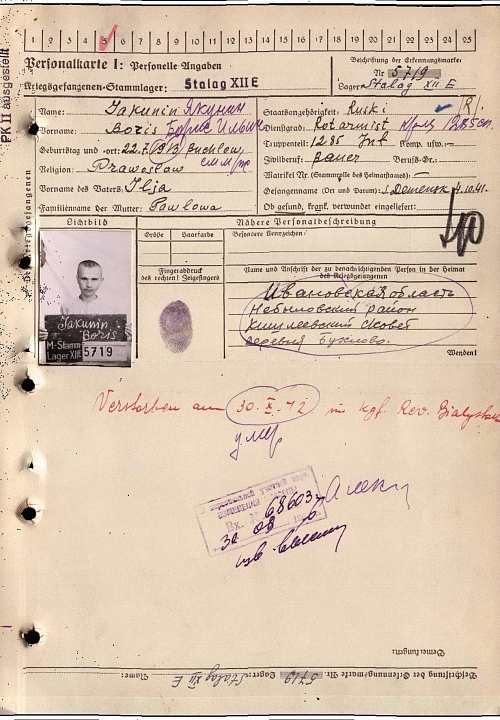 1 2 3 4 5 6 7 8 9 10 11 12 13 14 15 16 17 18 19 20 21 22 23 24 25
PK II ausgestellt
Personalkarte I: Personelle Angaben
Kriegsgefangenen-Stammlager: Stalag XII E
Beschriftung der Erkennungsmarke:
Nr. 5719
Lager: Stalag XII E
Name: Jakunin Якунин
Vorname: Boris Борис Ильич
Geburtstag und -ort: 22.7.1913 Buchlow
Religion: Prawoslaw
Vorname des Vaters: Ilja
Familienname der Mutter: Pawlowa
Staatsangehörigkeit: Ruski
Dienstgrad: Rotarmist
Truppenteil: 1285 Inf Komp. usw.:
Zivilberuf: Bauer Berufs-Gr.:
Matrikel Nr. (Stammrolle des Heimatstaates): -
Gefangennahme (Ort und Datum): Demensk 4.10.41.
Ob gesund, krank, verwundet eingeliefert:
Lichtbild
Nähere Personalbeschreibung
Größe Haarfarbe Besondere Kennzeichen:
Fingerabdruck
des rechten! Zeigefingers
Name und Anschrift der zu benachrichtigenden Person in der Heimat
des Kriegsgefangenen
Ивановская область
Небыловский район
деревня Бухлово.
Wenden!
Jakunin
Boris
M-Stamm-
Lager XII E 5719
Verstorben am 30. X. 42 in Kgf. Rev. Bialystok
умер
Вх. № 68603
Bemerkungen:
Beschriftung der Erkennungsmarke Nr. 5719 Lager: Stalag XII E Name: